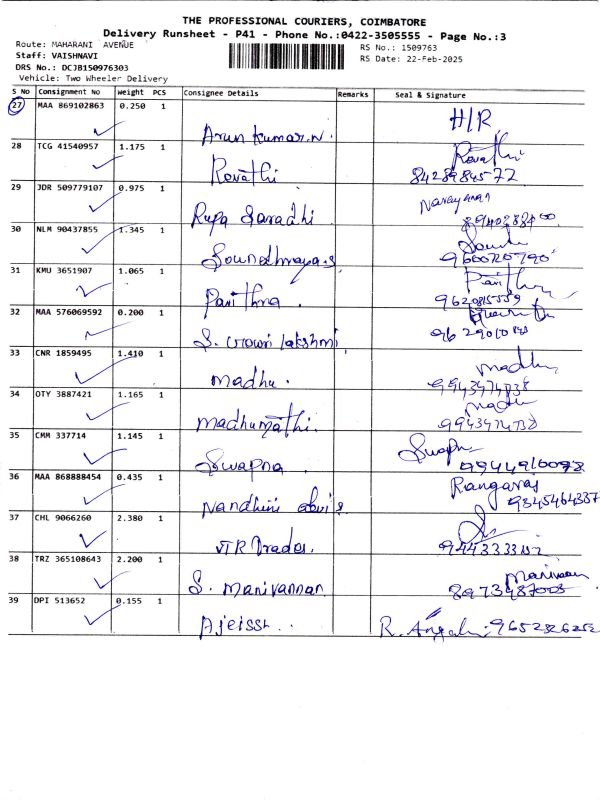 THE PROFESSIONAL COURIERS, COIMBATORE
Delivery Runsheet - P41 - Phone No.:0422-3505555 - Page No.:3
Route: MAHARANI AVENUE
Staff: VAISHNAVI
DRS No.: DCJB150976303
Vehicle: Two Wheeler Delivery
RS No.: 1509763
RS Date: 22-Feb-2025
S No Consignment No Weight PCS Consignee Details Remarks Seal & Signature
27 MAA 869102863 0.250 1 Arun kumar.N. H/R
28 TCG 41540957 1.175 1 Revathi Revathi
8428984577
29 JDR 509779107 0.975 1 Rupa Saradhi Narayanan
30 NLM 90437855 1.345 1
9600720790
31 KMU 3651907 1.065 1 Pavithra. Pavithra
9620815559
32 MAA 576069592 0.200 1 S. Gowri lakshmi
33 CNR 1859495 1.410 1 Madhu. Madhu
9943974738
34 OTY 3887421 1.165 1 Madhumathi. Madhu
9943974738
35 CMM 337714 1.145 1 Swapna Swapn
9944910092
36 MAA 868888454 0.435 1 Nandhini Rangaraj
9345464337
37 CHL 9066260 2.380 1 JTR Trades.
38 TRZ 365108643 2.200 1 S. Manivannan Manivan
8973487003
39 DPI 513652 0.155 1 R. 9652326252